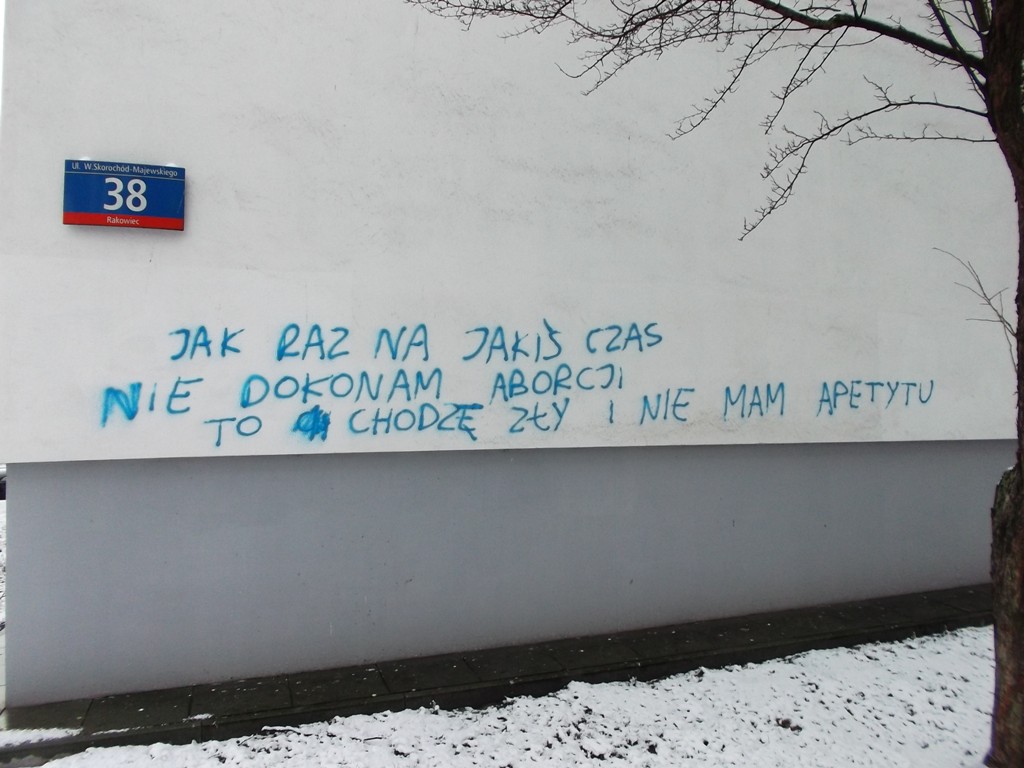 Ul. W.Skorochód-Majewskiego
38
Rakowiec
JAK RAZ NA JAKIŚ CZAS
NIE DOKONAM ABORCJI
TO CHODZĘ ZŁY I NIE MAM APETYTU